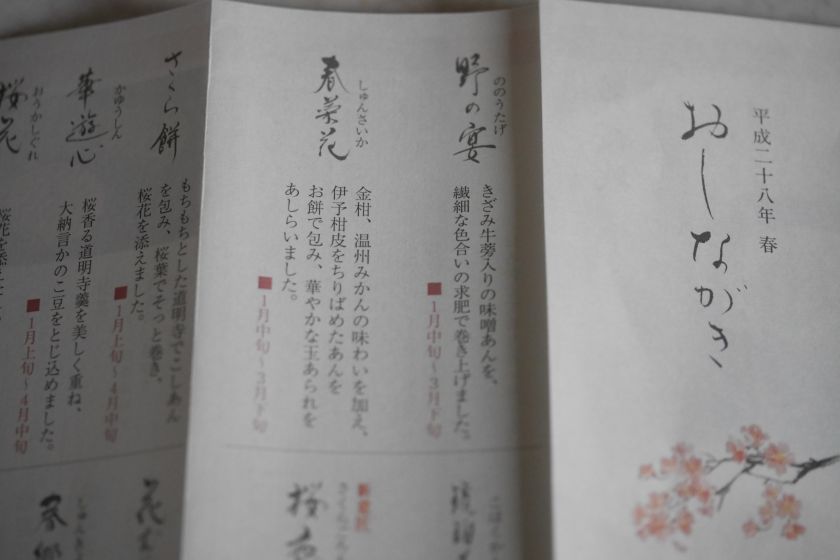 平成二十八年 春
おしながき
ののうたげ
野の宴
きざみ牛蒡入りの味噌あんを、
繊細な色合いの求肥で巻き上げました。
■1月中旬~3月下旬
しゅんさいか
春菜花
金柑、温州みかんの味わいを加え、
伊予柑皮をちりばめたあんを
お餅で包み、華やかな玉あられを
あしらいました。
■1月中旬~3月下旬
さくら餅
もちもちとした道明寺でこしあん
を包み、桜葉でそっと巻き、
桜花を添えました。
■1月上旬~4月中旬
かゆうしん
華遊心
桜香る道明寺羹を美しく重ね、
大納言かのこ豆をとじ込めました。
■1月上旬~4月中旬
おうかしぐれ
桜花